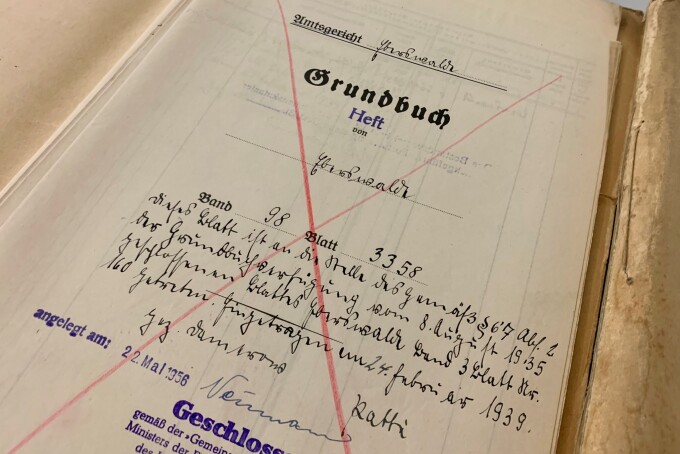 Amtsgericht Eberswalde
Grundbuch
Heft
von
Eberswalde
Band 98 Blatt 3358
Dieses Blatt ist an die Stelle des gemäß § 67 Abs. 2
der Grundbuchverfügung vom 8. August 1935
geschlossenen Blattes Eberswalde Band 3 Blatt Nr.
160 getreten. Eingetragen am 24. Februar 1939.
gez. Damerow Ratti
angelegt am:
22. Mai 1956
Neumann
Geschloss
gemäß der »Gemein
Ministers der